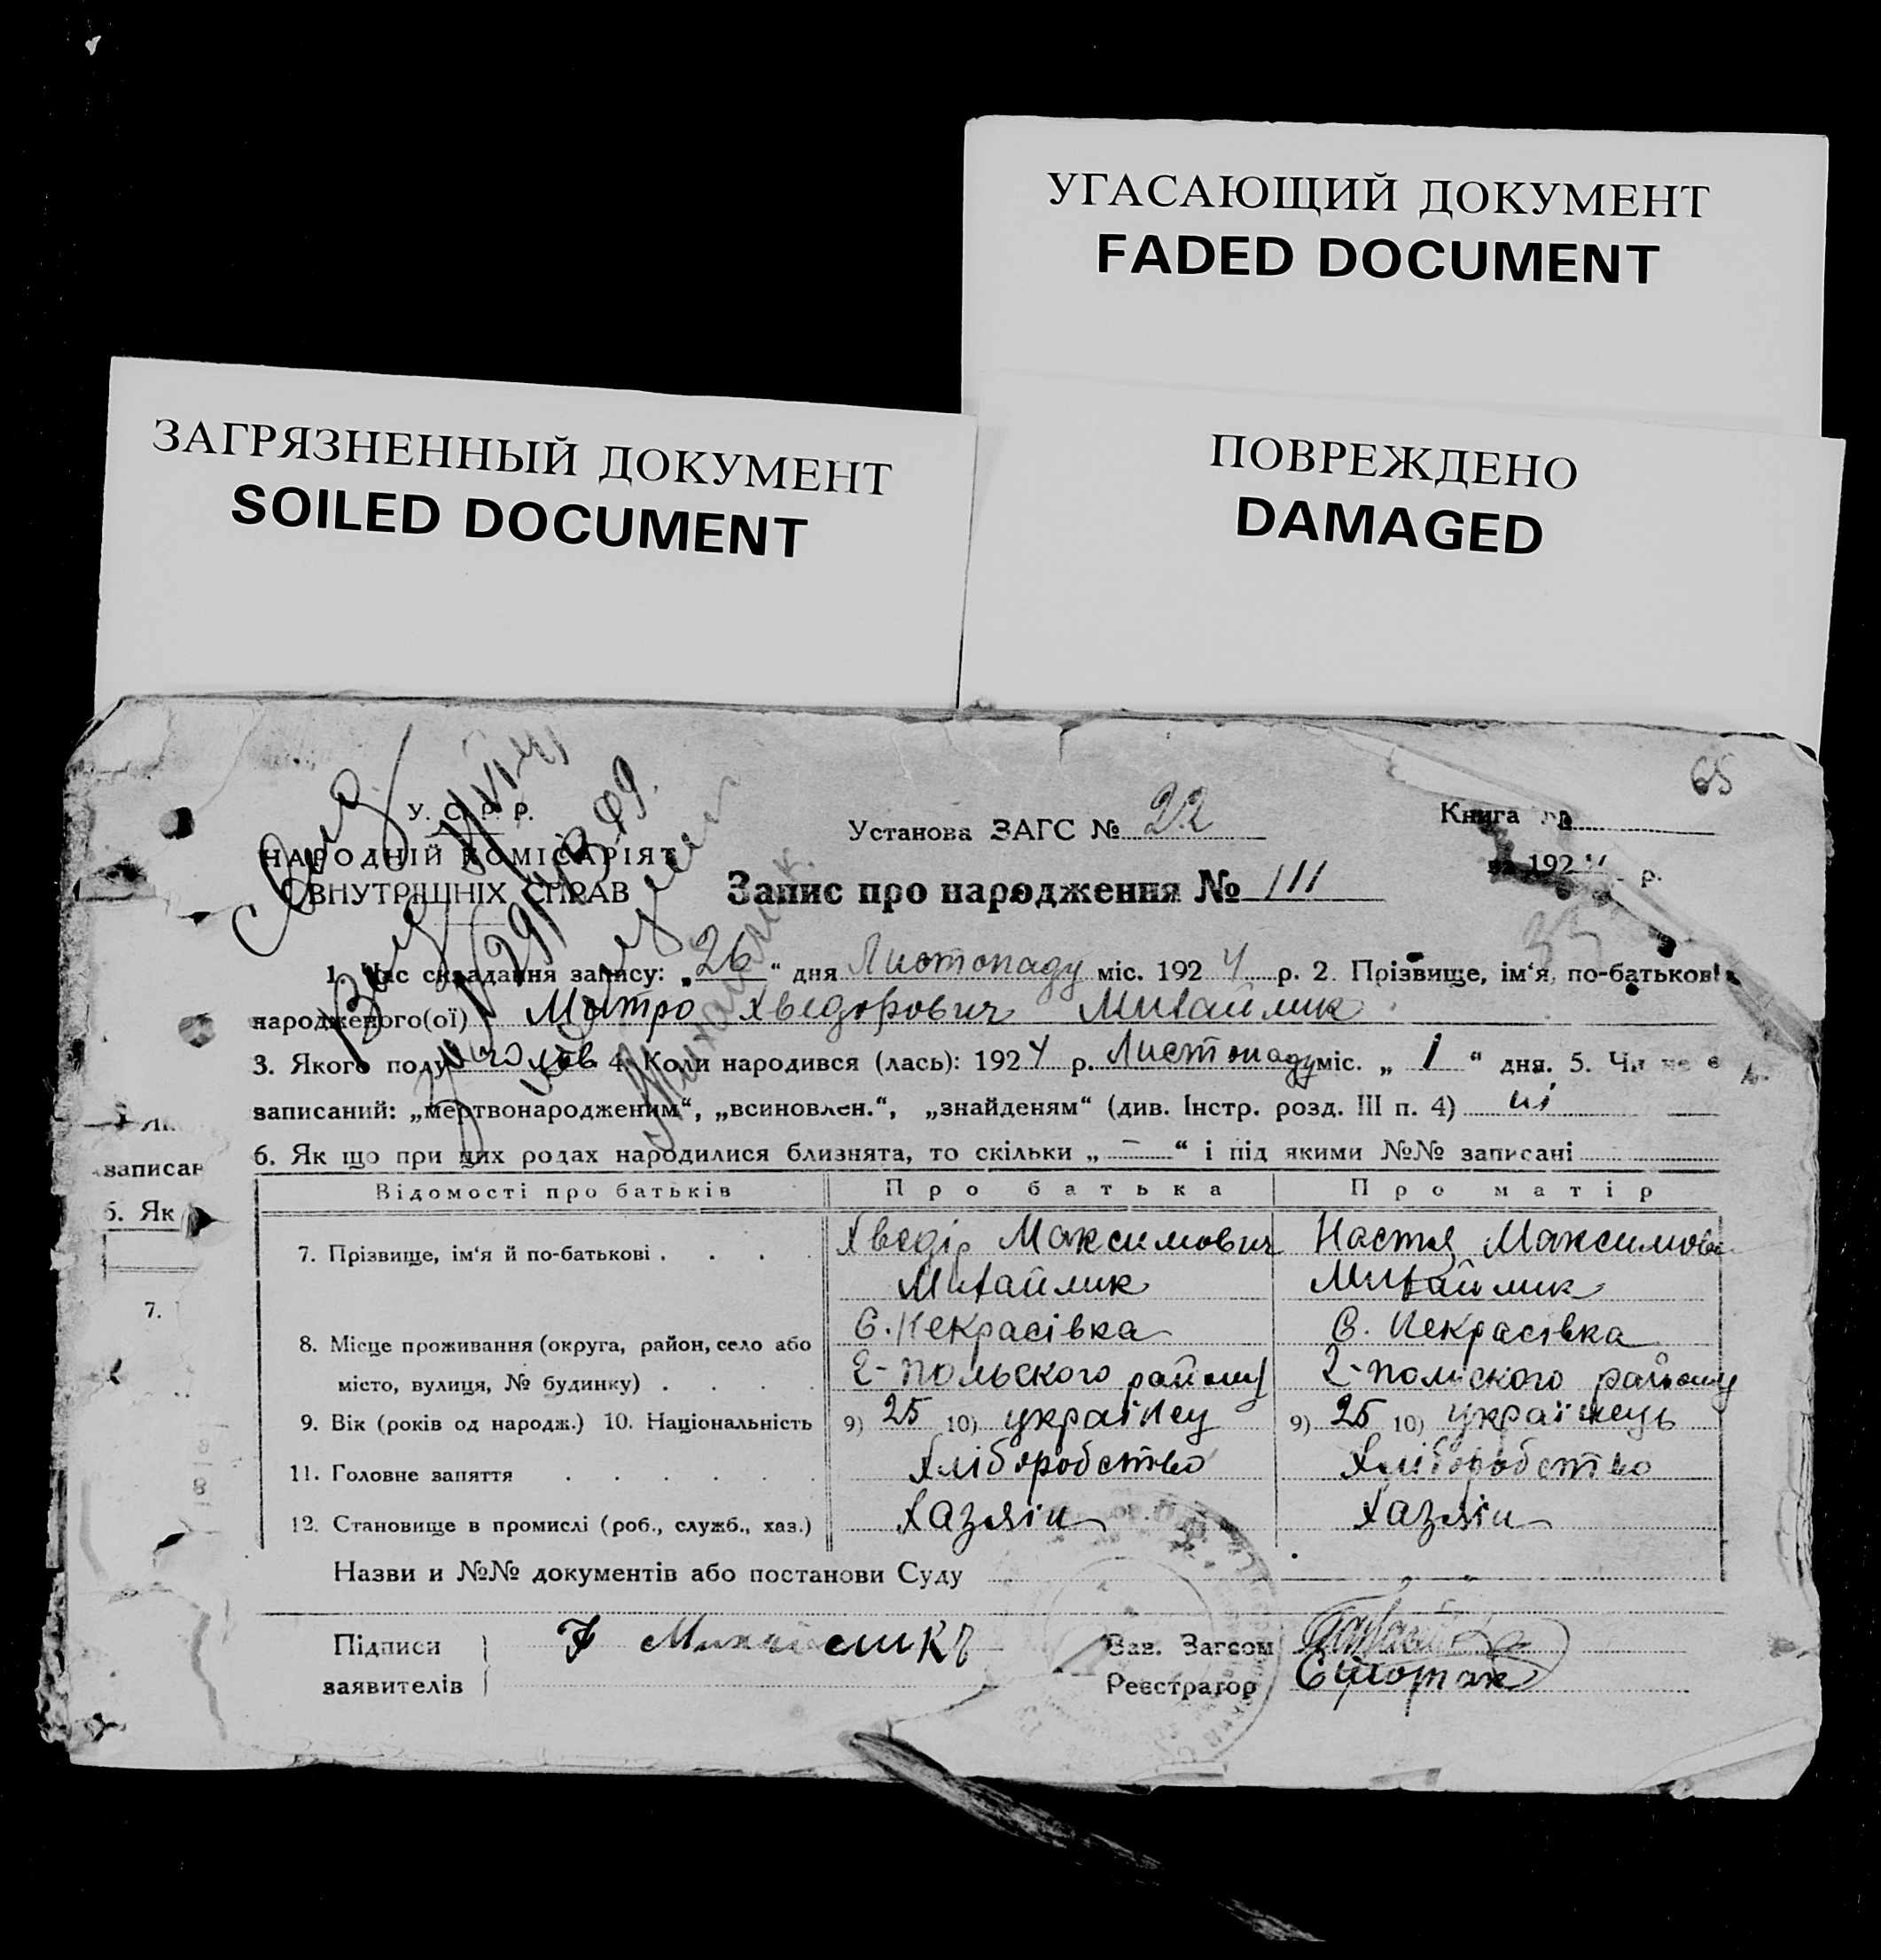 УГАСАЮЩИЙ ДОКУМЕНТ
FADED DOCUMENT
ЗАГРЯЗНЕННЫЙ ДОКУМЕНТ
SOILED DOCUMENT
ПОВРЕЖДЕНО
DAMAGED
65
У. С. Р. Р.
НАРОДНІЙ КОМІСАРІЯТ
ВНУТРІШНІХ СПРАВ
Установа ЗАГС № 22
Книга
192 р.
Запис про народження № 111
1. Час складання запису: „26“ дня Листопаду міс. 1924 р. 2. Прізвище, ім‘я, по-батькові
народженого(ої) Митро Хведорович Михайлик
3. Якого полу чолов. 4. Коли народився (лась): 1924 р. Листопаду міс. „1“ дня. 5. Чи не є
записаний: „мертвонародженим“, „всиновлен.“, „знайденям“ (див. Інстр. розд. III п. 4) ні
6. Як що при цих родах народилися близнята, то скільки „—“ і під якими №№ записані
записан
6. Як
7.
Відомості про батьків Про батька Про матір
7. Прізвище, ім‘я й по-батькові . . . . Хведір Максимович Настя Максимов
Михайлик Михайлик
8. Місце проживання (округа, район, село або С. Некрасівка С. Некрасівка
місто, вулиця, № будинку) . . . . польского району району
9. Вік (років од народж.) 10. Національність 9) 25 10) українец 9) 25 10) українець
11. Головне заняття . . . . . . Хліборобство Хліборобство
12. Становище в промислі (роб., служб., хаз.) Хазяін Хазяін
Назви и №№ документів або постанови Суду
Підписи
заявителів
Зав. Загсом
Реєстратор